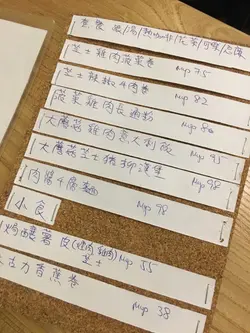 套餐 跟/湯/熱咖啡/花茶/可樂/忌廉
芝士雞肉菠菜卷 mop 75
芝士辣椒牛肉卷 mop 82
菠菜雞肉長通粉 mop 86
大蘑菇雞肉意大利飯 mop 95
大蘑菇芝士豬柳漢堡 mop 98
肉醬千層麵 mop 98
小食
焗釀薯皮(雞肉 芝士) mop 55
古力香蕉卷 mop 38